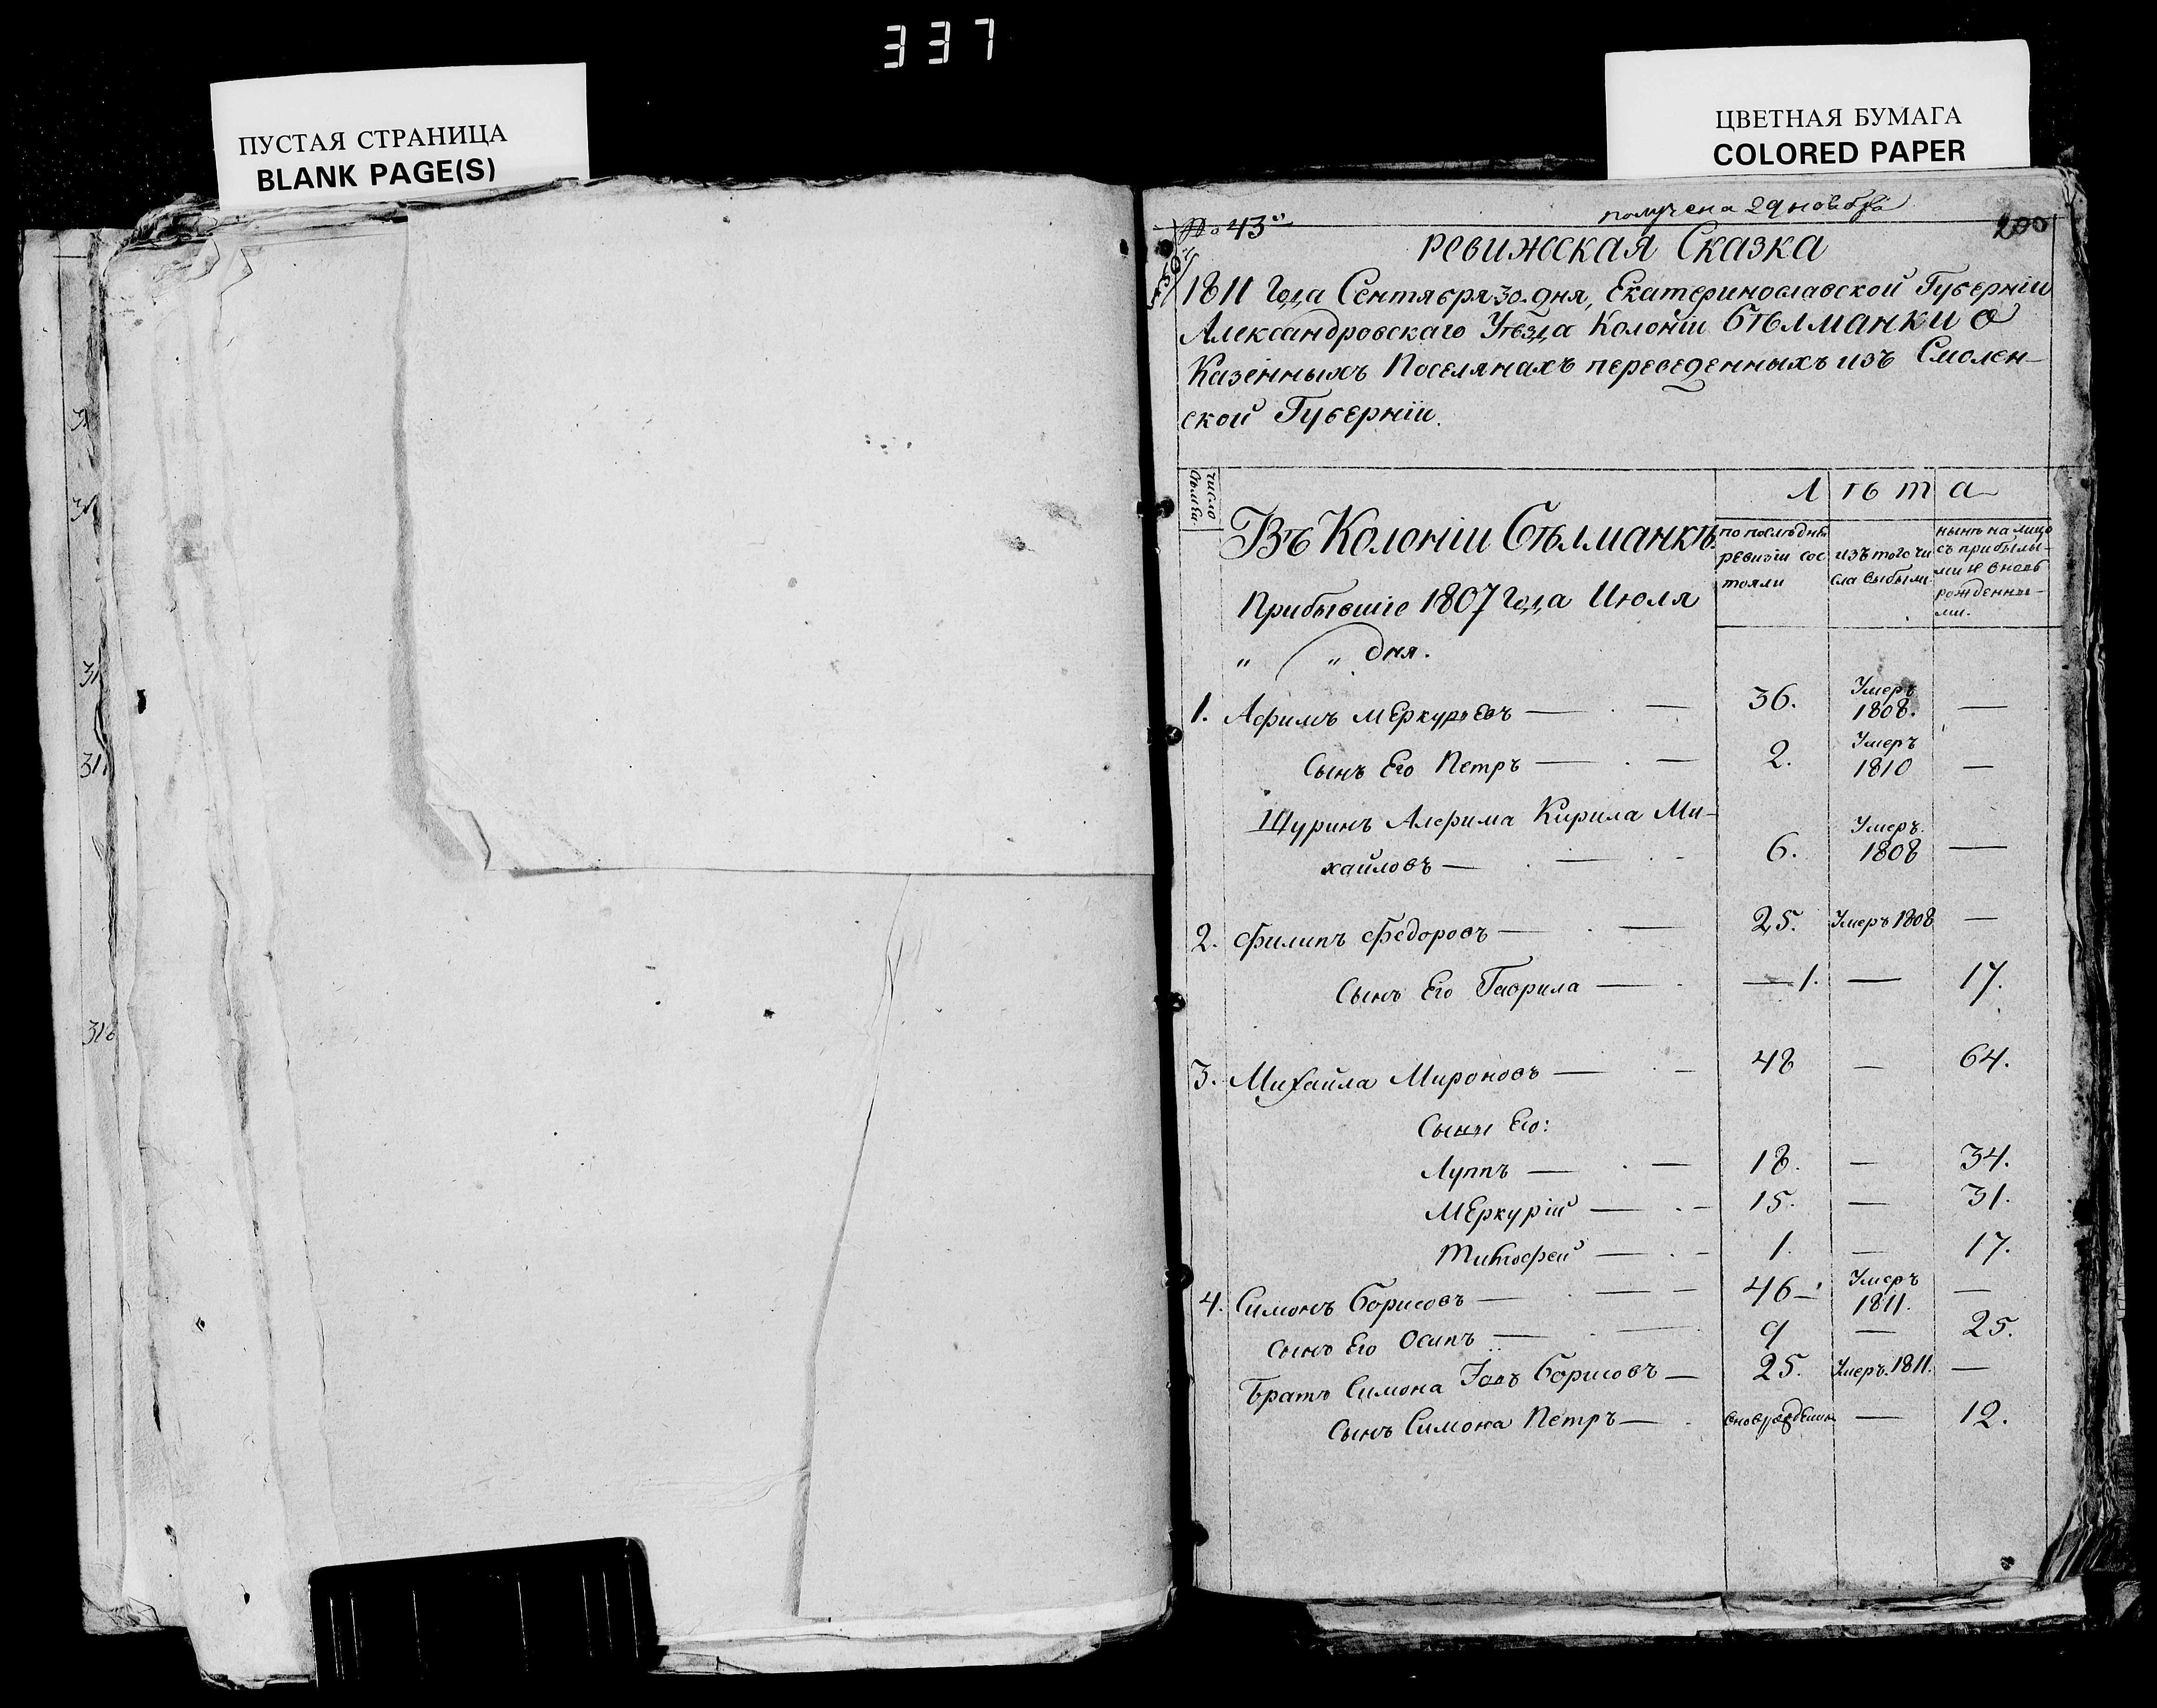 337
ПУСТАЯ СТРАНИЦА
BLANK PAGE(S)
ЦВЕТНАЯ БУМАГА
COLORED PAPER
получена 29 ноября
№ 43
200
Ревижская Сказка
1811 Года Сентября 30. дня, Екатеринославской Губерніи
Александровскаго Уѣзда Колоніи Бѣлманки о
Казенныхъ Поселянахъ переведенныхъ изъ Смолен-
ской Губерніи.
число
Лѣта
Въ Колоніи Бѣлманкѣ
по послѣдней
ревизіи сос
тояли
изъ того чи
сла выбыли
нынѣ на лицо
съ прибылы-
ми и вновь
рожденны-
ми.
Прибывшіе 1807 года Июля
" " дня.
1. Афимъ Меркурьевъ — 36. Умеръ 1808. —
Сынъ Его Петръ — 2. Умеръ 1810 —
Шуринъ Алефима Кирила Ми-
хайловъ — 6. Умеръ 1808 —
2. Филипъ Федоровъ — 25. Умеръ 1808 —
Сынъ Его Гаврила — 1. — 17.
3. Михайла Мироновъ — 48 — 64.
Сыны Его:
Луппъ — 18. — 34.
Меркурій — 15. — 31.
Тимофей — 1. — 17.
4. Симонъ Борисовъ — 46 Умеръ 1811. —
Сынъ Его Осипъ — 9 — 25.
Братъ Симона Іовъ Борисовъ — 25. Умеръ. 1811. —
Сынъ Симона Петръ — — 12.
31
31
31